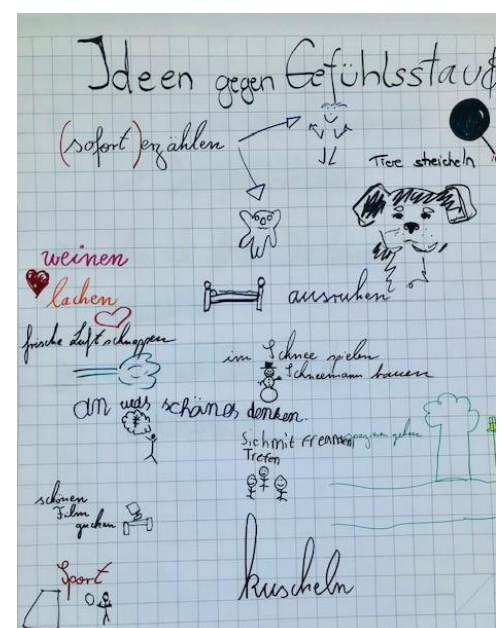 Ideen gegen Gefühlsstau
(sofort) erzählen
Tiere streicheln
weinen
lachen
ausruhen
frische Luft schnappen
im Schnee spielen
Schneemann bauen
an was schönes denken
Sich mit Freunden
Treffen
spazieren gehen
schönen
Film
gucken
Sport
kuscheln